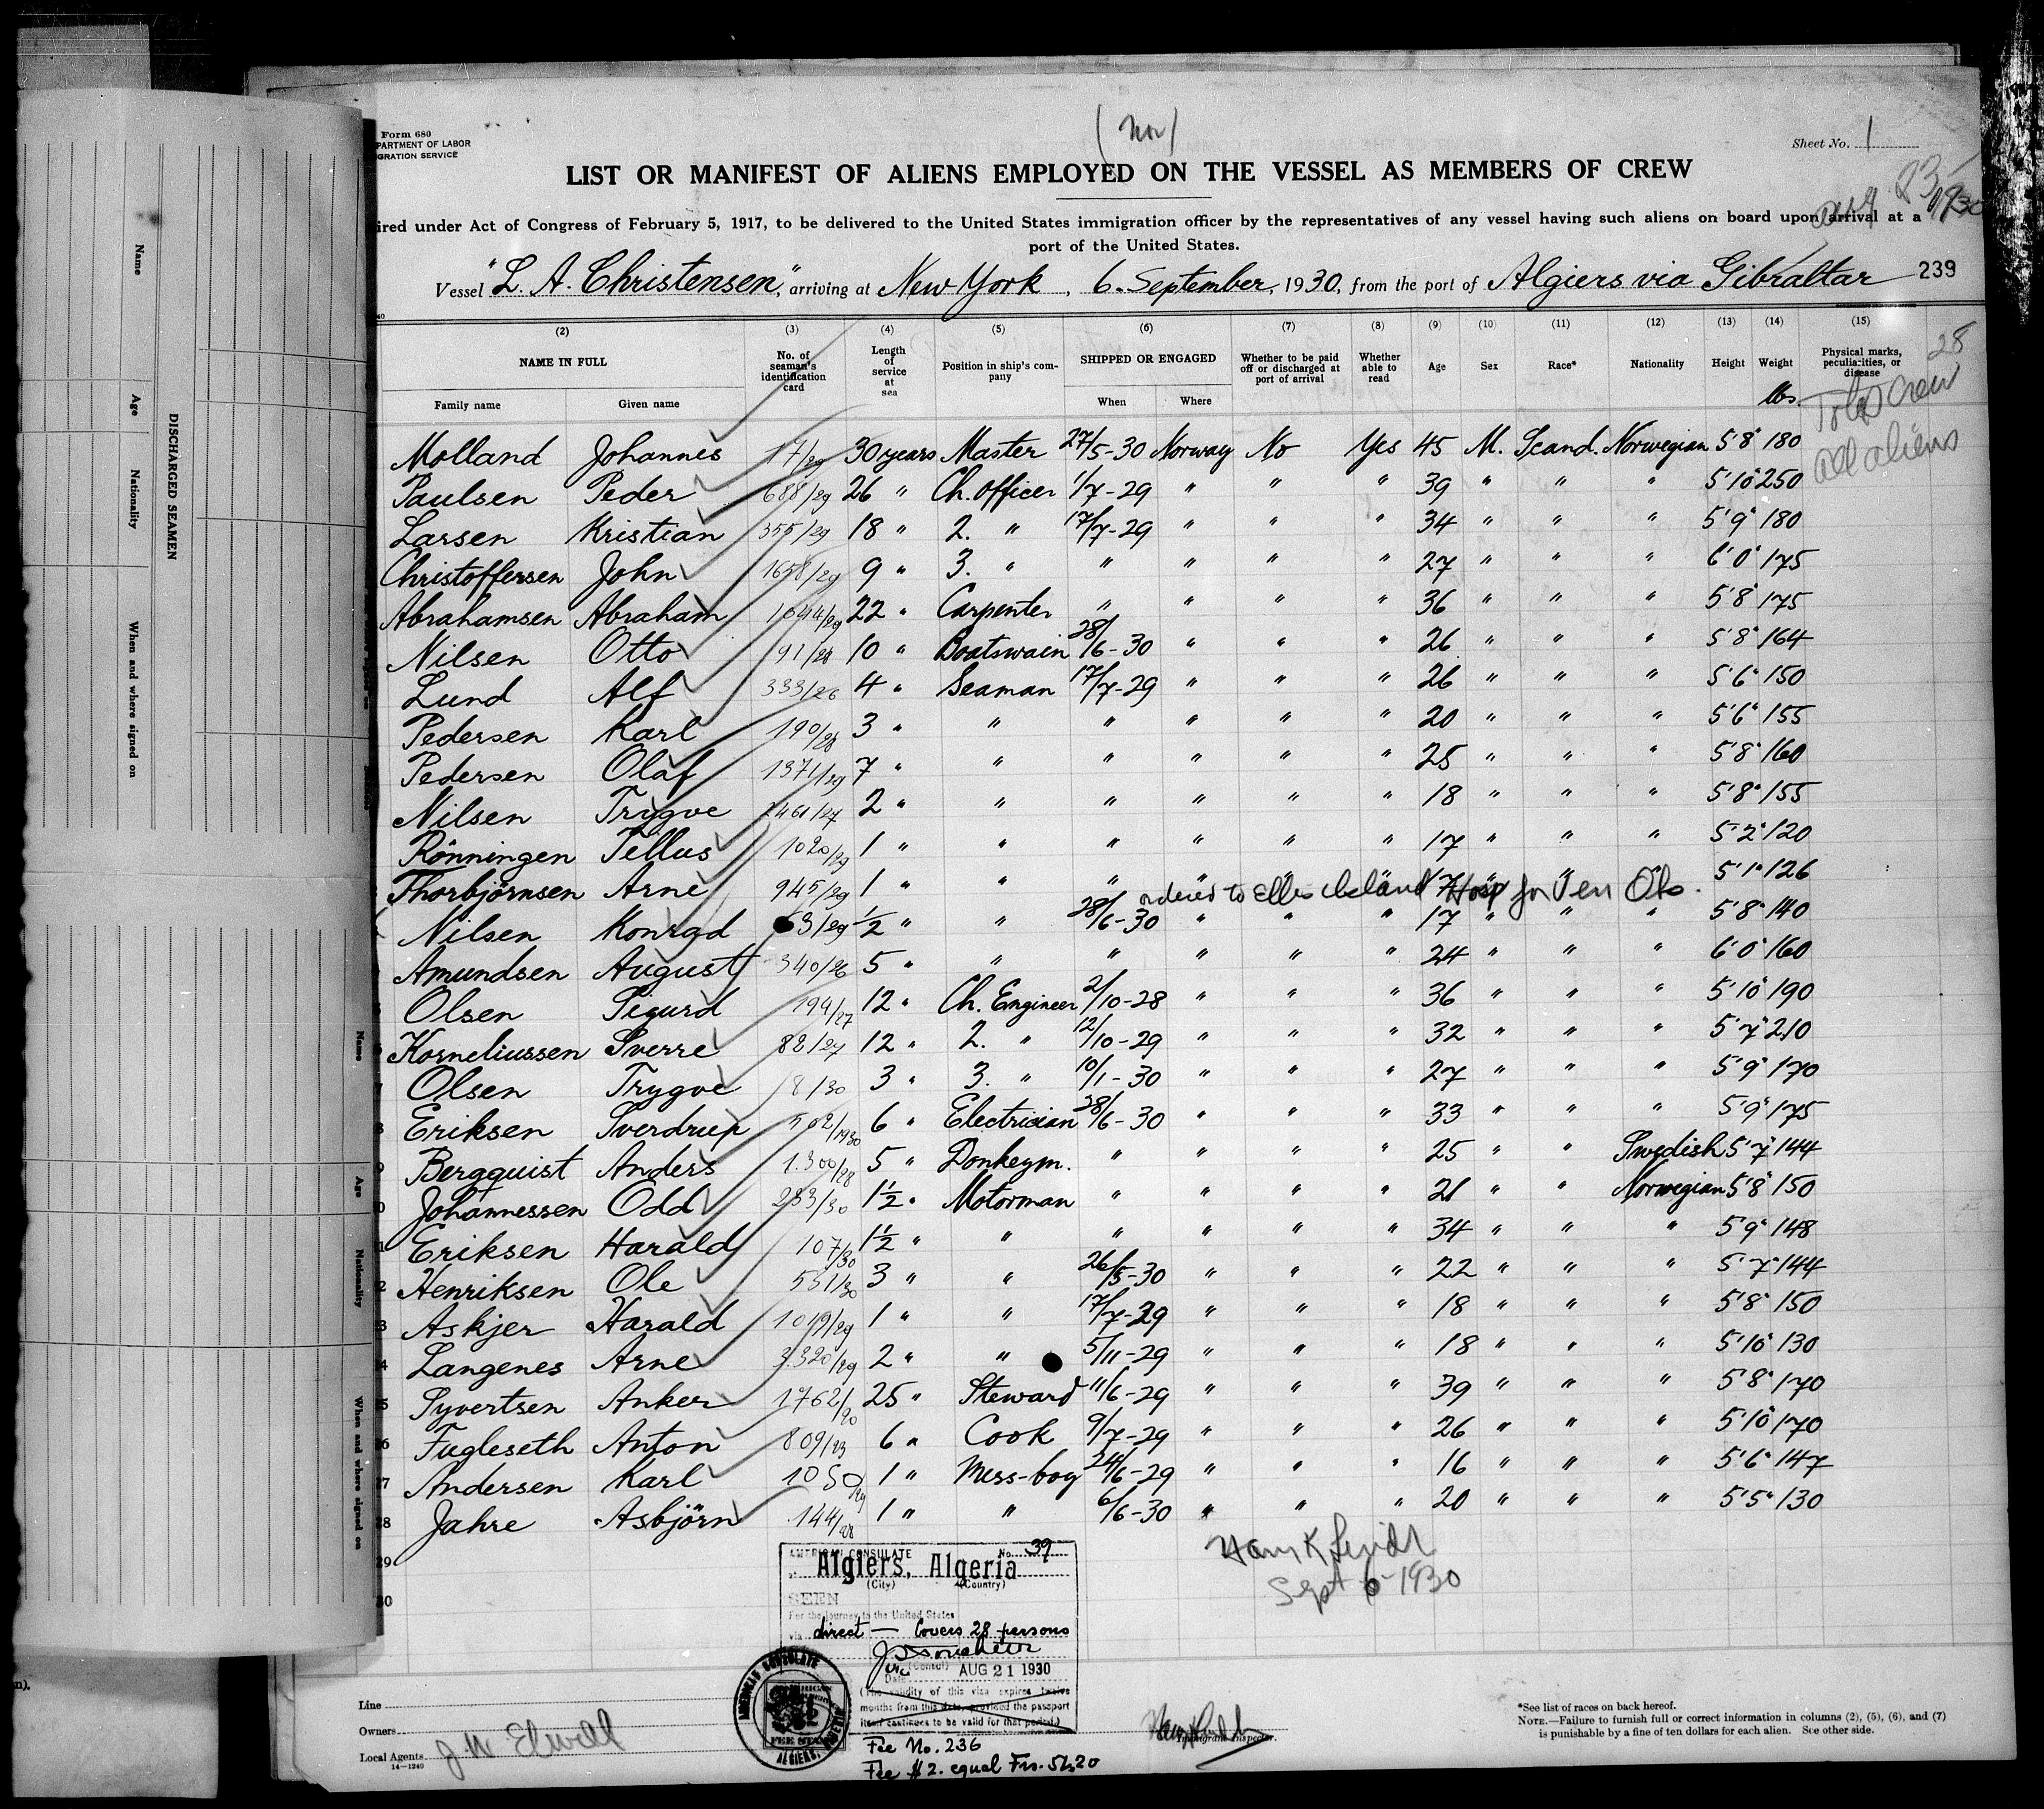 Form 680
PARTMENT OF LABOR
GRATION SERVICE
(Nor)
Sheet No. 1
LIST OR MANIFEST OF ALIENS EMPLOYED ON THE VESSEL AS MEMBERS OF CREW
ired under Act of Congress of February 5, 1917, to be delivered to the United States immigration officer by the representatives of any vessel having such aliens on board upon arrival at a
port of the United States.
Vessel "L. A. Christensen", arriving at New York, 6. September, 1930, from the port of Algiers via Gibraltar 239
(2) (3) (4) (5) (6) (7) (8) (9) (10) (11) (12) (13) (14) (15)
NAME IN FULL No. of seaman's identification card Length of service at sea Position in ship's company SHIPPED OR ENGAGED Whether to be paid off or discharged at port of arrival Whether able to read Age Sex Race* Nationality Height Weight Physical marks, peculiarities, or disease
Family name Given name When Where lbs.
28
Total Crew
all aliens
Molland Johannes 17/29 30 years Master 27/5-30 Norway No Yes 45 M. Scand. Norwegian 5'8" 180
Paulsen Peder 688/29 26 " Ch. officer 1/7-29 " " " 39 " " " 5'10" 250
Larsen Kristian 355/29 18 " 2. " 17/7-29 " " " 34 " " " 5'9" 180
Christoffersen John 1658/29 9 " 3. " " " " " 27 " " " 6'0" 175
Abrahamsen Abraham 1044/29 22 " Carpenter " " " " 36 " " " 5'8" 175
Nilsen Otto 91/28 10 " Boatswain 28/6-30 " " " 26 " " " 5'8" 164
Lund Alf 333/26 4 " Seaman 17/7-29 " " " 26 " " " 5'6" 150
Pedersen Karl 190/28 3 " " " " " " 20 " " " 5'6" 155
Pedersen Olaf 1371/29 7 " " " " " " 25 " " " 5'8" 160
Nilsen Trygve 2461/27 2 " " " " " " 18 " " " 5'8" 155
Rönningen Tellus 1020/29 1 " " " " " " 17 " " " 5'2" 120
Thorbjörnsen Arne 945/29 1 " " " " " " 17 " " " 5'1" 126
ordered to Ellis Island Hosp for Ven Obs.
Nilsen Konrad 63/29 1/2 " " 28/6-30 " " " 17 " " " 5'8" 140
Amundsen August 340/26 5 " " " " " " 24 " " " 6'0" 160
Olsen Sigurd 194/27 12 " Ch. Engineer 2/10-28 " " " 36 " " " 5'10" 190
Korneliussen Sverre 82/27 12 " 2. " 12/10-29 " " " 32 " " " 5'7" 210
Olsen Trygve 8/30 3 " 3. " 10/1-30 " " " 27 " " " 5'9" 170
Eriksen Sverdrup 502/1930 6 " Electrician 28/6-30 " " " 33 " " " 5'9" 175
Bergquist Anders 1.300/28 5 " Donkeym. " " " " 25 " " Swedish 5'7" 144
Johannessen Odd 233/30 1 1/2 " Motorman " " " " 21 " " Norwegian 5'8" 150
Eriksen Harald 107/30 1 1/2 " " " " " " 34 " " " 5'9" 148
Henriksen Ole 551/30 3 " " 26/5-30 " " " 22 " " " 5'7" 144
Askjer Harald 1019/29 1 " " 17/7-29 " " " 18 " " " 5'8" 150
Langenes Arne 3.320/29 2 " " 5/11-29 " " " 18 " " " 5'10" 130
Syvertsen Anker 1762/20 25 " Steward 11/6-29 " " " 39 " " " 5'8" 170
Fugleseth Anton 809/23 6 " Cook 9/7-29 " " " 26 " " " 5'10" 170
Andersen Karl 1050/29 1 " Mess-boy 24/6-29 " " " 16 " " " 5'6" 147
Jahre Asbjörn 144/28 1 " " 6/6-30 " " " 20 " " " 5'5" 130
29
30
Sept 6-1930
AMERICAN CONSULATE No. 39
Algiers, Algeria
(City) (Country)
SEEN
For the journey to the United States
via direct — Covers 28 persons
(Consul)
Date AUG 21 1930
(The validity of this visa expires twelve
months from this date, provided the passport
itself continues to be valid for that period.)
AMERICAN CONSULATE
ALGIERS, ALGERIA
Fee No. 236
Fee $2. equal Frs. 51,20
Line
Owners
Local Agents J W Elwell
14—1240
Immigrant Inspector.
*See list of races on back hereof.
NOTE.—Failure to furnish full or correct information in columns (2), (5), (6), and (7)
is punishable by a fine of ten dollars for each alien. See other side.
DISCHARGED SEAMEN
Name
Age
Nationality
When and where signed on
Name
Age
Nationality
When and where signed on